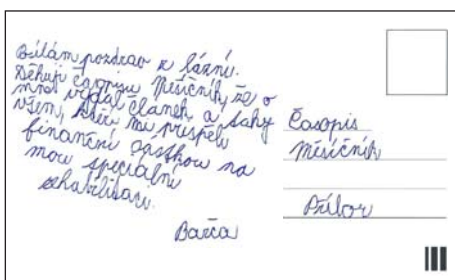 Posílám pozdrav z lázní.
Děkuji časopisu Měsíčník, že o
mně vydal článek a taky
všem, kteří mi přispěli
finanční částkou na
mou speciální
rehabilitaci.
Barča
Časopis
Měsíčník
Příbor